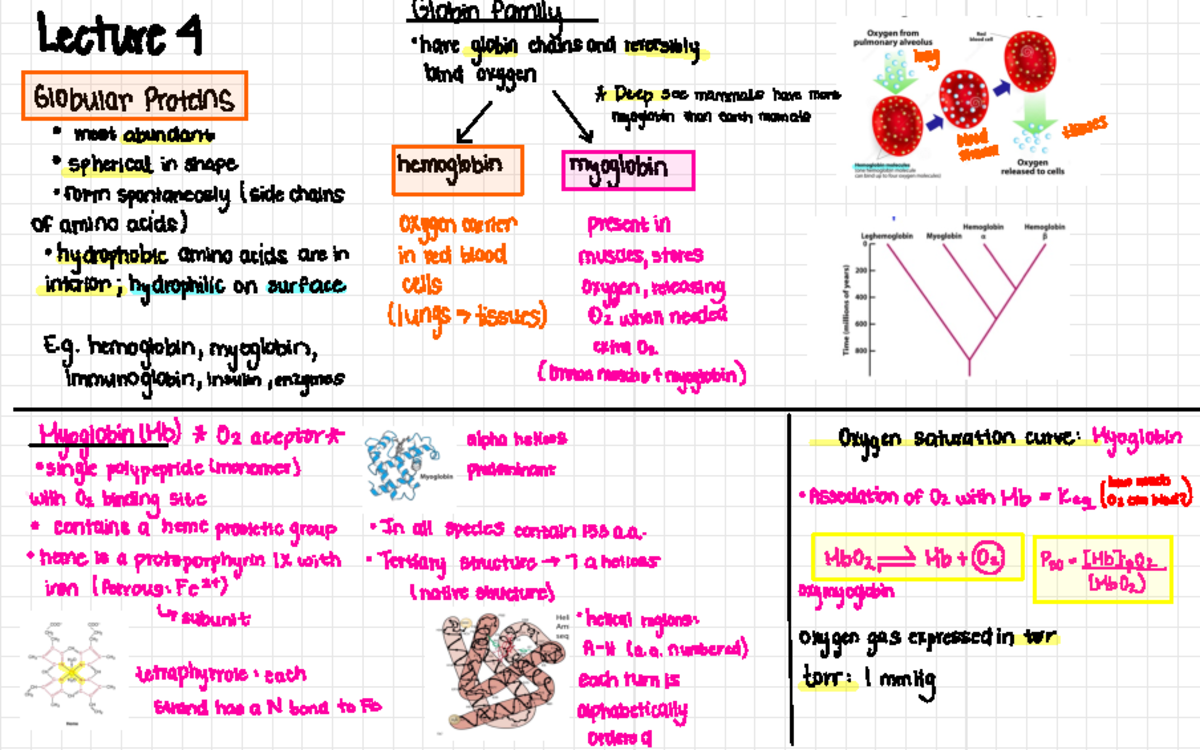 Lecture 4
Globular Proteins
• most abundant
• spherical in shape
• form spontaneously (side chains
of amino acids)
• hydrophobic amino acids are in
interior; hydrophilic on surface
E.g. hemoglobin, myoglobin,
immunoglobin, insulin, enzymes
Globin Family
• have globin chains and reversibly
bind oxygen
* Deep sea mammals have more
myoglobin than earth mamals
hemoglobin
oxygen carrier
in red blood
cells
(lungs → tissues)
myoglobin
present in
muscles, stores
oxygen, releasing
O2 when needed
extra O2
Oxygen from
pulmonary alveolus
lung
Red
blood cell
blood
stream
tissues
Oxygen
released to cells
Hemoglobin molecules
(one hemoglobin molecule
can bind up to four oxygen molecules)
Leghemoglobin
Myoglobin
Hemoglobin
α
Hemoglobin
β
Time (millions of years)
0
200
400
600
800
Myoglobin (Mb) * O2 aceptor*
• single polypepride (monomer)
with O2 binding site
• contains a heme prostetic group
• heme is a protoporphyrin IX with
iron (Ferrous: Fe2+)
↳ subunit
tetraphyrrole: each
strand has a N bond to Fe
Heme
Myoglobin
alpha helices
predominant
• In all species contain 153 a.a.
• Tertiary structure → 7 α helices
(native structure)
Heli
Am
seq
• helical regions:
A-H (a.a. numbered)
each turn is
alphabetically
ordered
Oxygen saturation curve: Myoglobin
• Association of O2 with Mb = Keq (how much
O2 can bind?)
MbO2 ⇌ Mb + O2
oxymyoglobin
P50 = [Mb]pO2
[MbO2]
oxygen gas expressed in torr
torr: 1 mmHg